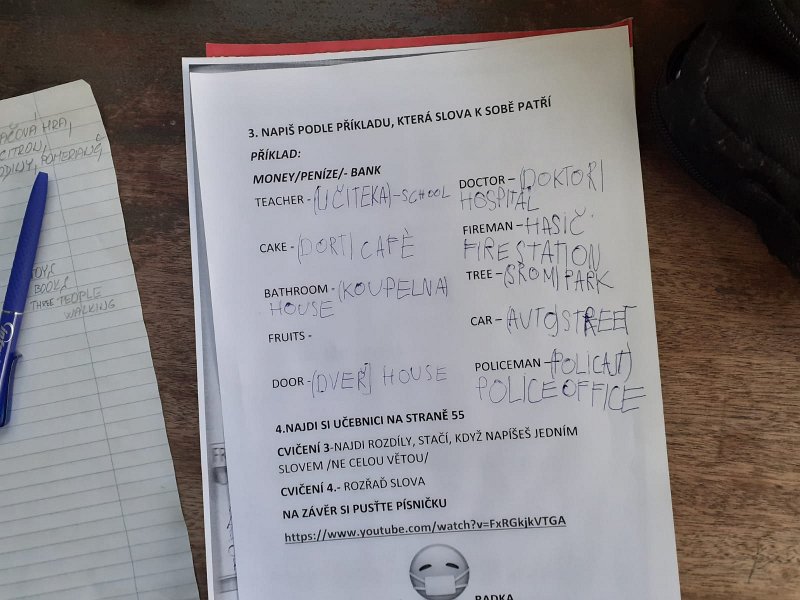 AČOVA HRA,
CITRON,
ODINY, POMERANČ
TOYS
BOOKS
THREE PEOPLE
WALKING
3. NAPIŠ PODLE PŘÍKLADU, KTERÁ SLOVA K SOBĚ PATŘÍ
PŘÍKLAD:
MONEY/PENÍZE/- BANK
TEACHER - (UČITEKA) - SCHOOL
CAKE - (DORT) CAFÈ
BATHROOM - (KOUPELNA)
HOUSE
FRUITS -
DOOR - (DVEŘ) HOUSE
DOCTOR – (DOKTOR)
HOSPITAL
FIREMAN – HASIČ
FIRE STATION
TREE – (SROM) PARK
CAR – (AUTO) STREET
POLICEMAN – (POLICAJT)
POLICE OFFICE
4.NAJDI SI UČEBNICI NA STRANĚ 55
CVIČENÍ 3-NAJDI ROZDÍLY, STAČÍ, KDYŽ NAPÍŠEŠ JEDNÍM
SLOVEM /NE CELOU VĚTOU/
CVIČENÍ 4.- ROZŘAĎ SLOVA
NA ZÁVĚR SI PUSŤTE PÍSNIČKU
https://www.youtube.com/watch?v=FxRGkjkVTGA
RADKA